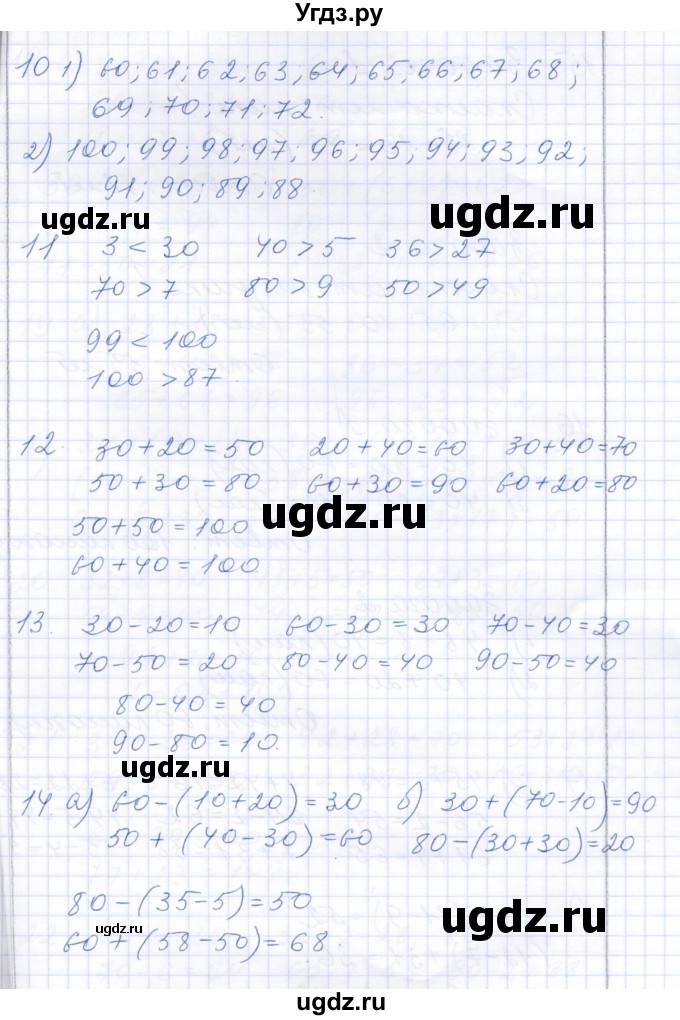 Угдз.ру
10 1) 60; 61; 62; 63; 64; 65; 66; 67; 68;
69; 70; 71; 72.
2) 100; 99; 98; 97; 96; 95; 94; 93, 92;
91; 90; 89; 88
ugdz.ru ugdz.ru
11 3 < 30 40 > 5 36 > 27
70 > 7 80 > 9 50 > 49
99 < 100
100 > 87
12. 30 + 20 = 50 20 + 40 = 60 30 + 40 = 70
50 + 30 = 80 60 + 30 = 90 60 + 20 = 80
ugdz.ru
50 + 50 = 100
60 + 40 = 100
13. 30 - 20 = 10 60 - 30 = 30 70 - 40 = 30
70 - 50 = 20 80 - 40 = 40 90 - 50 = 40
80 - 40 = 40
90 - 80 = 10.
ugdz.ru
14. а) 60 - (10 + 20) = 30 б) 30 + (70 - 10) = 90
50 + (40 - 30) = 60 80 - (30 + 30) = 20
80 - (35 - 5) = 50
ugdz.ru ugdz.ru
60 + (58 - 50) = 68.
ugdz.ru